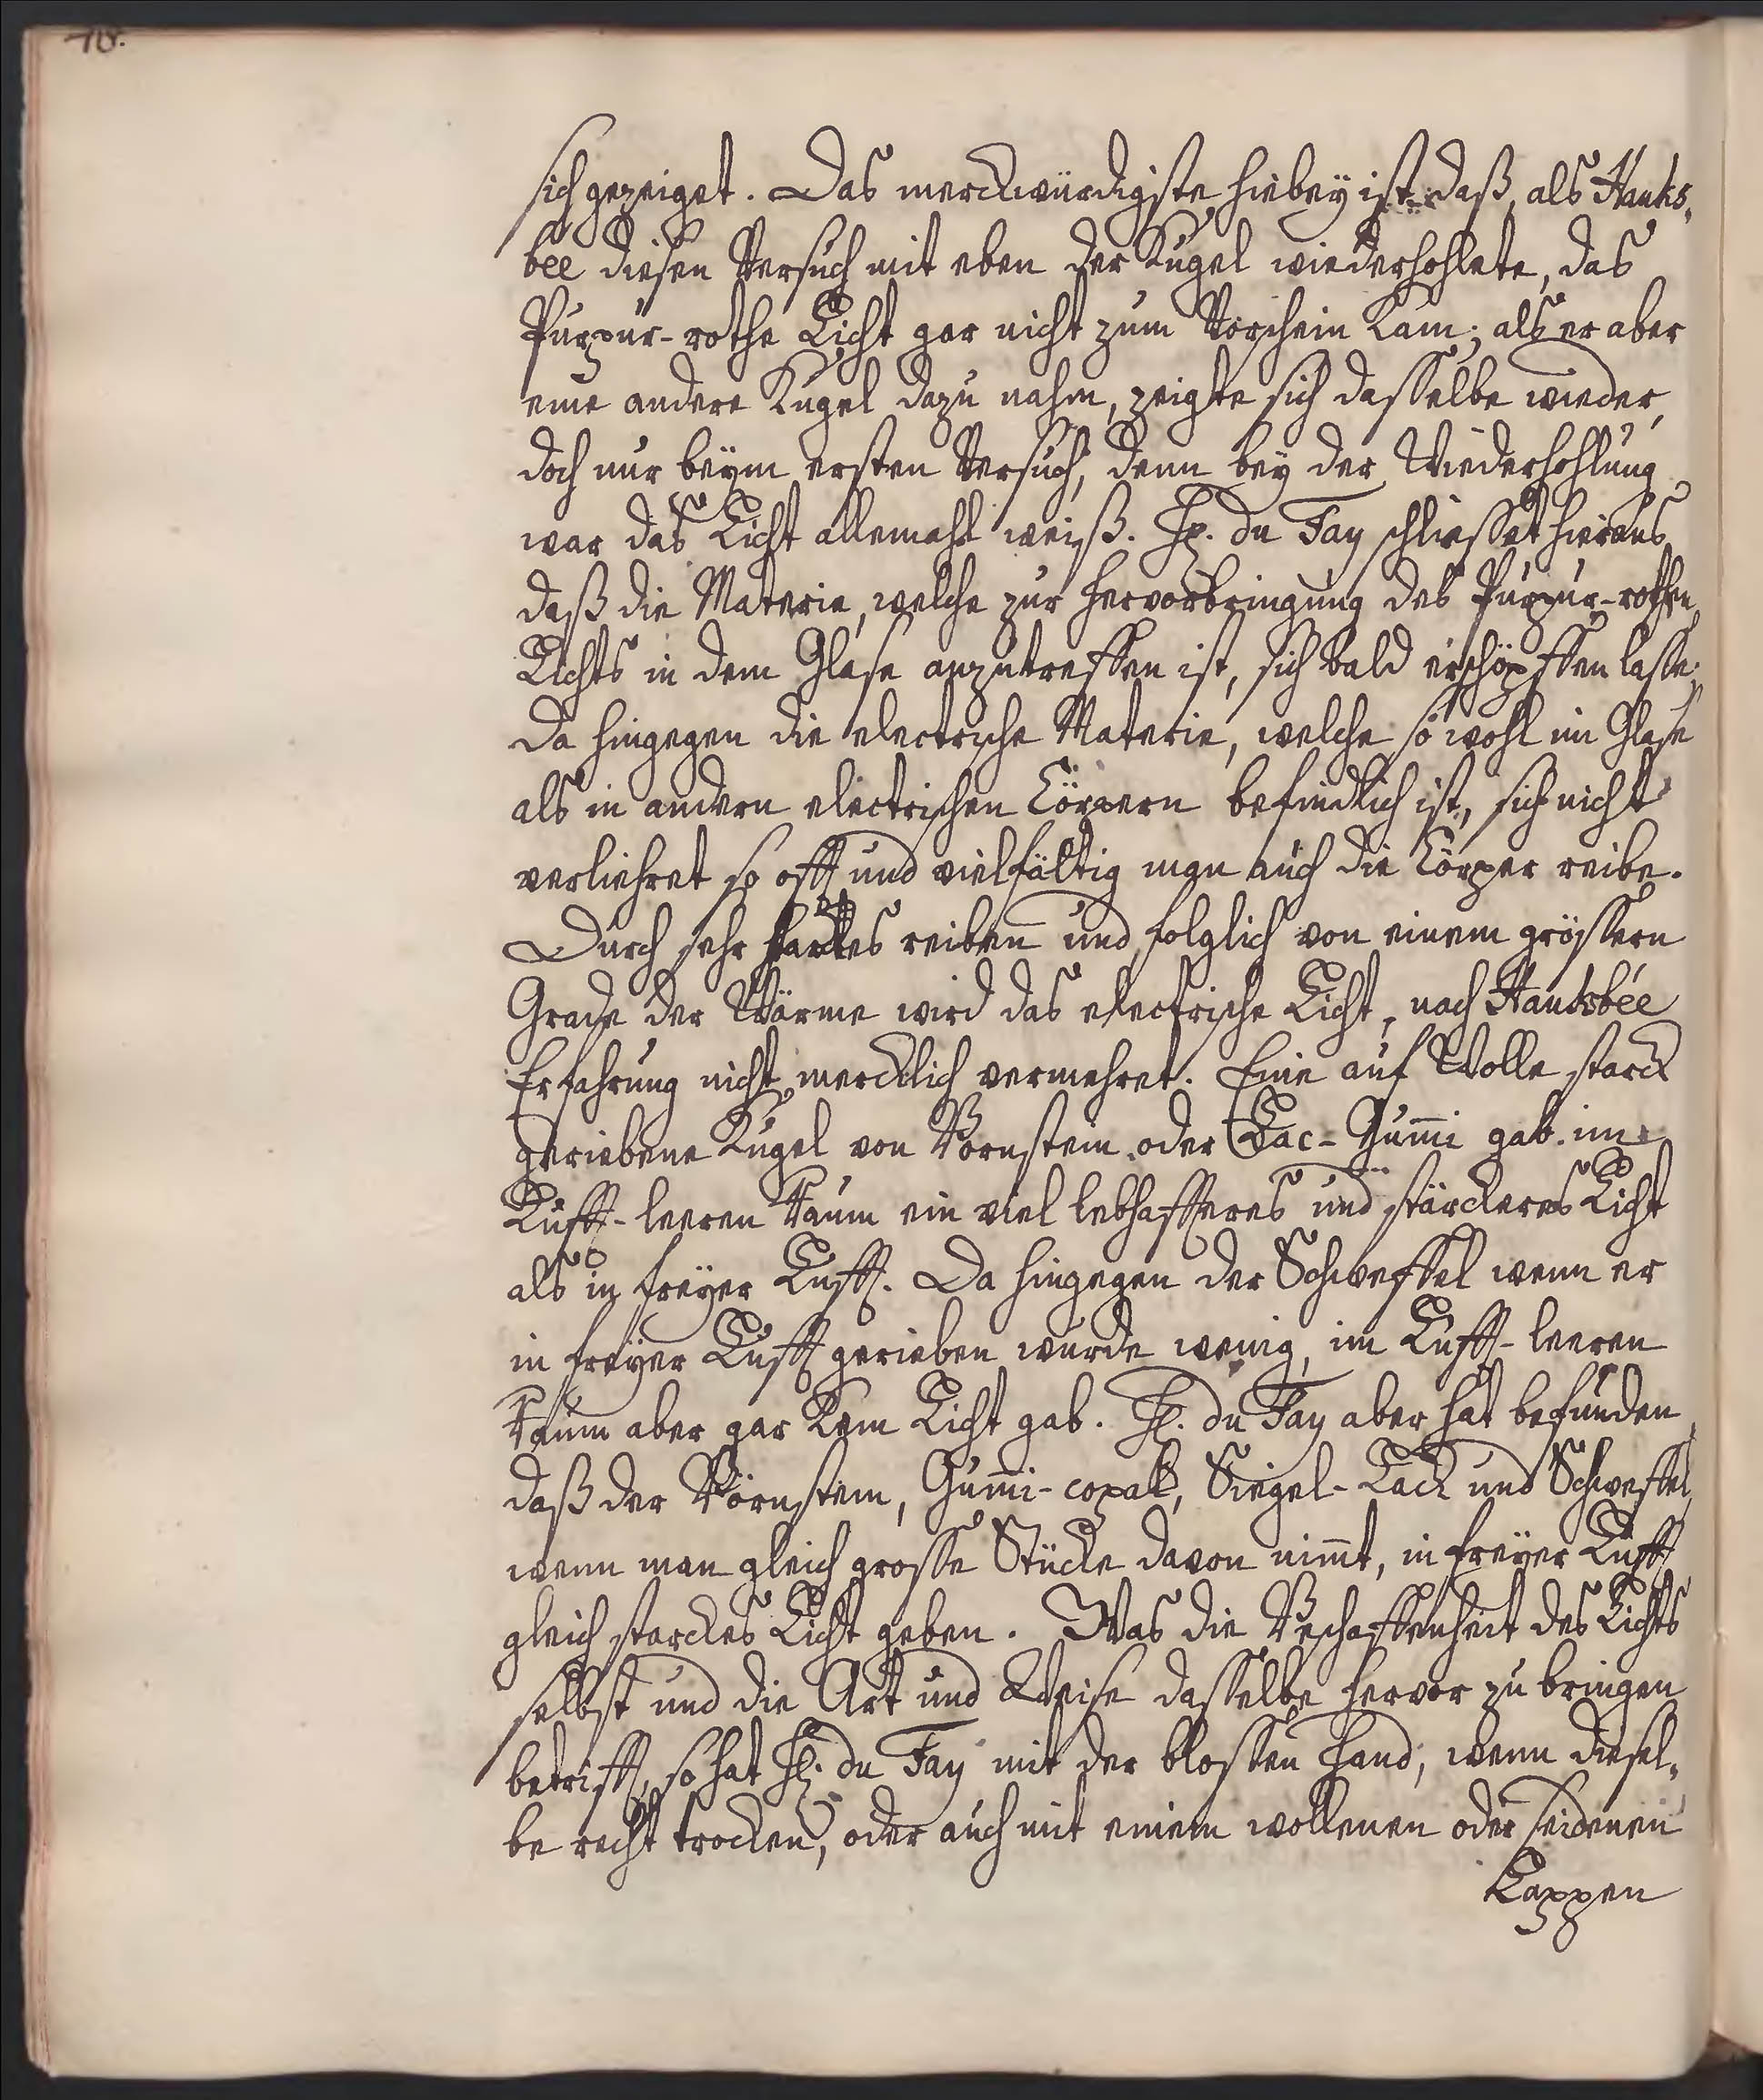 sich gezeiget. Das merckwürdigste hiebey ist daß, als Hauks-
bee diesen Versuch mit eben der Kugel wiederhohlete, das
Purpur-rothe Licht gar nicht zum Vorschein kam; als er aber
eine andere Kugel dazu nahm, zeigte sich dasselbe wieder,
doch nur beym ersten Versuch, denn bey der Wiederhohlung
war das Licht allemahl weiß. Hr. du Fay schliesset hieraus,
daß die Materie, welche zur Hervorbringung des Purpur-rothen
Lichts in dem Glase anzutreffen ist, sich bald erschöpffen lasse;
Da hingegen die electrische Materie, welche so wohl im Glase
als in andern electrischen Cörpern befindlich ist, sich nicht
verliehret so offt und vielfältig man auch die Cörper reibe.
Durch sehr reiben und folglich von einem grössern
Grade der Wärme wird das electrische Licht, nach Hauksbée
Erfahrung nicht mercklich vermehret. Eine auf Wolle starck
geriebene Kugel von Börnstein oder Lac-Gum̄i gab im
Lufft-leeren Raum ein viel lebhaffteres und stärckeres Licht
als in freyer Lufft. Da hingegen der Schweffel wenn er
in freyer Lufft gerieben wurde wenig, im Lufft-leeren
Raum aber gar kein Licht gab. Hr. du Fay aber hat befunden,
daß der Börnstein, Gum̄i-copal, Siegel-Lack und Schweffel,
wenn man gleich grosse Stücke davon nim̄t, in freyer Lufft
gleich starckes Licht geben. Was die Beschaffenheit des Lichts
selbst und die Art und Weise dasselbe hervor zu bringen
betrifft, so hat Hr. du Fay mit der blossen Hand, wenn diesel-
be recht trocken, oder auch mit einem wollenen oder seidenen
Lappen